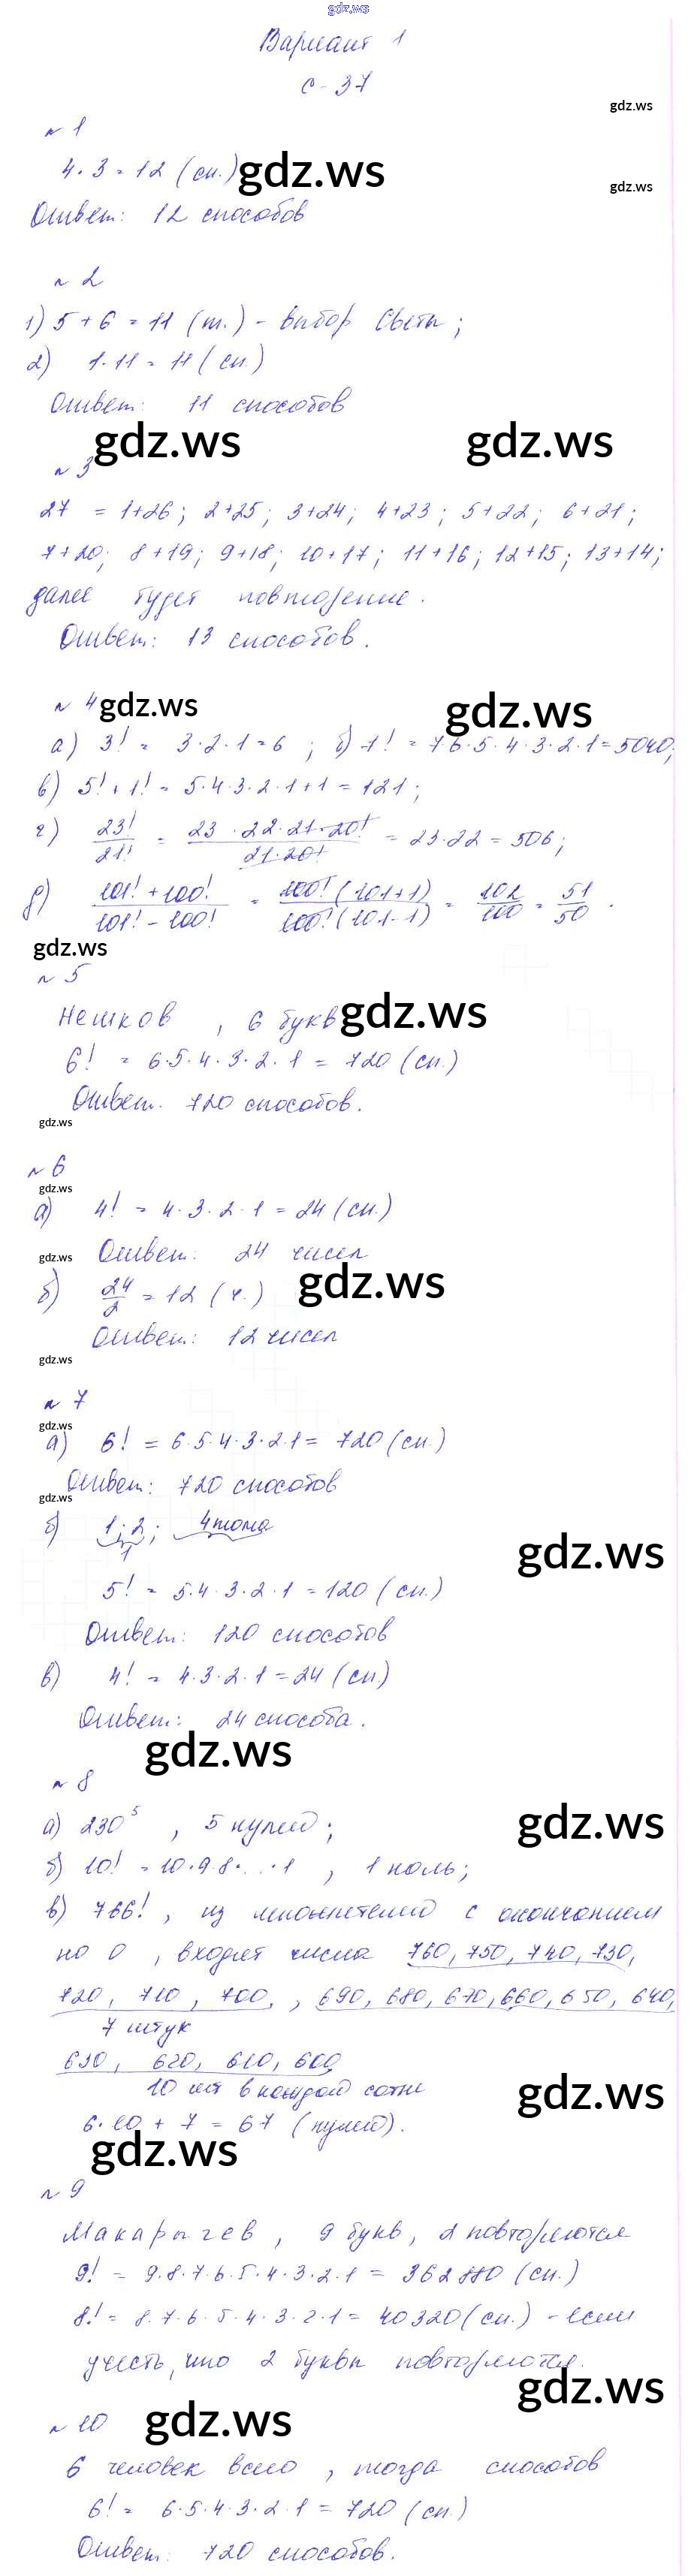 gdz.ws
Вариант 1
С-37
gdz.ws
№ 1
4·3 = 12 (сп.) gdz.ws
gdz.ws
Ответ: 12 способов
№ 2
1) 5 + 6 = 11 (т.) - выбор Светы;
2) 1·11 = 11 (сп.)
Ответ: 11 способов
gdz.ws gdz.ws
№ 3
27 = 1+26; 2+25; 3+24; 4+23; 5+22; 6+21;
7+20; 8+19; 9+18; 10+17; 11+16; 12+15; 13+14;
далее будет повторение.
Ответ: 13 способов.
№ 4 gdz.ws gdz.ws
а) 3! = 3·2·1 = 6; б) 7! = 7·6·5·4·3·2·1 = 5040;
в) 5! + 1! = 5·4·3·2·1 + 1 = 121;
г) 23!/21! = 23·22·21·20!/21·20! = 23·22 = 506;
д) 101! + 100!/101! - 100! = 100! (101+1)/100! (101-1) = 102/100 = 51/50.
gdz.ws
№ 5
Нешков, 6 букв gdz.ws
6! = 6·5·4·3·2·1 = 720 (сп.)
Ответ. 720 способов.
gdz.ws
№ 6
gdz.ws
а) 4! = 4·3·2·1 = 24 (сп.)
Ответ: 24 чисел
gdz.ws
б) 24/2 = 12 (ч.) gdz.ws
Ответ: 12 чисел
gdz.ws
№ 7
gdz.ws
а) 6! = 6·5·4·3·2·1 = 720 (сп.)
Ответ: 720 способов
gdz.ws
б) 1; 2; 4 тома
1
gdz.ws
5! = 5·4·3·2·1 = 120 (сп.)
Ответ: 120 способов
в) 4! = 4·3·2·1 = 24 (сп.)
Ответ: 24 способа.
gdz.ws
№ 8
а) 230⁵, 5 нулей; gdz.ws
б) 10! = 10·9·8·...·1, 1 ноль;
в) 766!, из множителей с окончанием
на 0, входят числа 760, 750, 740, 730,
720, 710, 700, , 690, 680, 670, 660, 650, 640,
7 штук
630, 620, 610, 600
10 шт в каждой сотне
gdz.ws
6·10 + 7 = 67 (нулей).
gdz.ws
№ 9
Макарычев, 9 букв, 2 повторяются
9! = 9·8·7·6·5·4·3·2·1 = 362880 (сп.)
8! = 8·7·6·5·4·3·2·1 = 40320 (сп.) - если
учесть, что 2 буквы повторяются.
gdz.ws
№ 10 gdz.ws
6 человек всего, тогда способов
6! = 6·5·4·3·2·1 = 720 (сп)
Ответ: 720 способов.